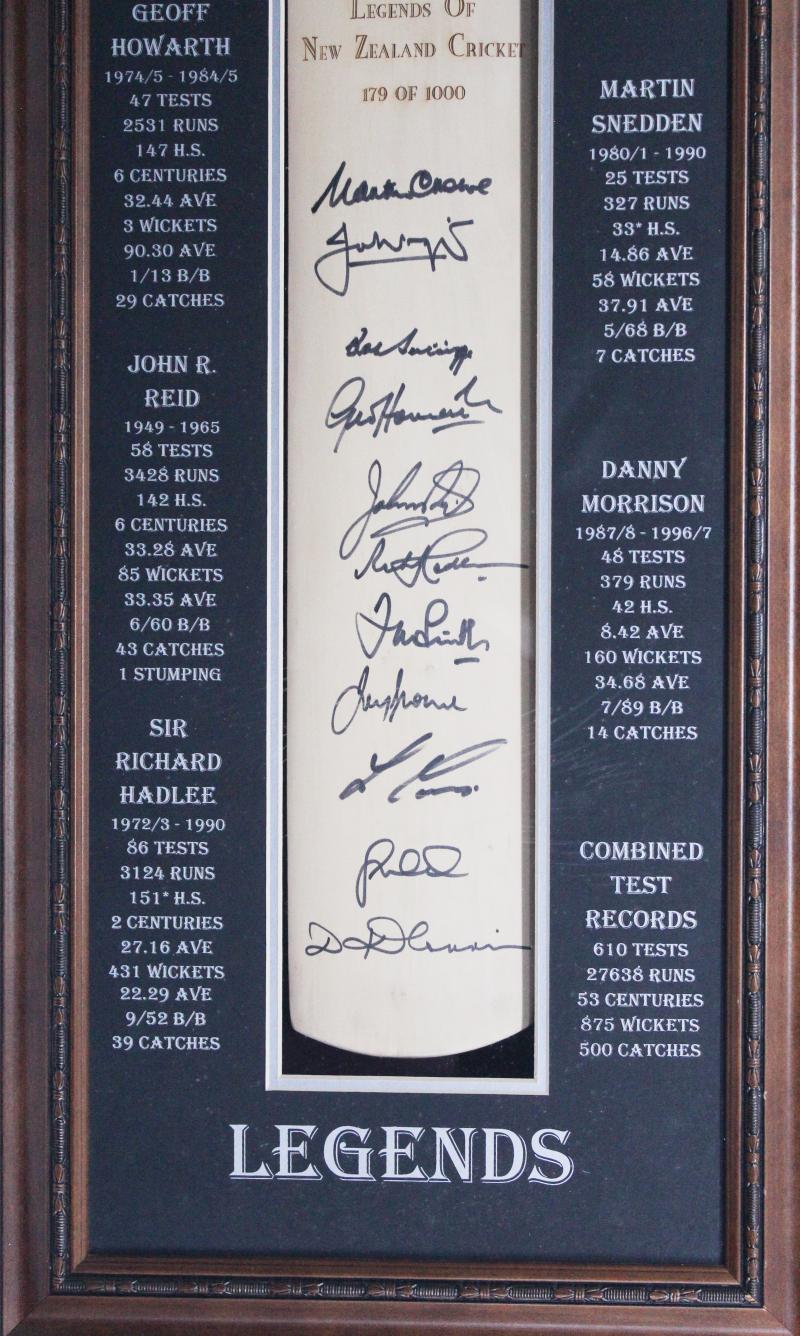 GEOFF
HOWARTH
1974/5 - 1984/5
47 TESTS
2531 RUNS
147 H.S.
6 CENTURIES
32.44 AVE
3 WICKETS
90.30 AVE
1/13 B/B
29 CATCHES
JOHN R.
REID
1949 - 1965
58 TESTS
3428 RUNS
142 H.S.
6 CENTURIES
33.28 AVE
85 WICKETS
33.35 AVE
6/60 B/B
43 CATCHES
1 STUMPING
SIR
RICHARD
HADLEE
1972/3 - 1990
86 TESTS
3124 RUNS
151* H.S.
2 CENTURIES
27.16 AVE
431 WICKETS
22.29 AVE
9/52 B/B
39 CATCHES
LEGENDS OF
NEW ZEALAND CRICKET
179 OF 1000
Martin Crowe
MARTIN
SNEDDEN
1980/1 - 1990
25 TESTS
327 RUNS
33* H.S.
14.86 AVE
58 WICKETS
37.91 AVE
5/68 B/B
7 CATCHES
DANNY
MORRISON
1987/8 - 1996/7
48 TESTS
379 RUNS
42 H.S.
8.42 AVE
160 WICKETS
34.68 AVE
7/89 B/B
14 CATCHES
COMBINED
TEST
RECORDS
610 TESTS
27638 RUNS
53 CENTURIES
875 WICKETS
500 CATCHES
LEGENDS